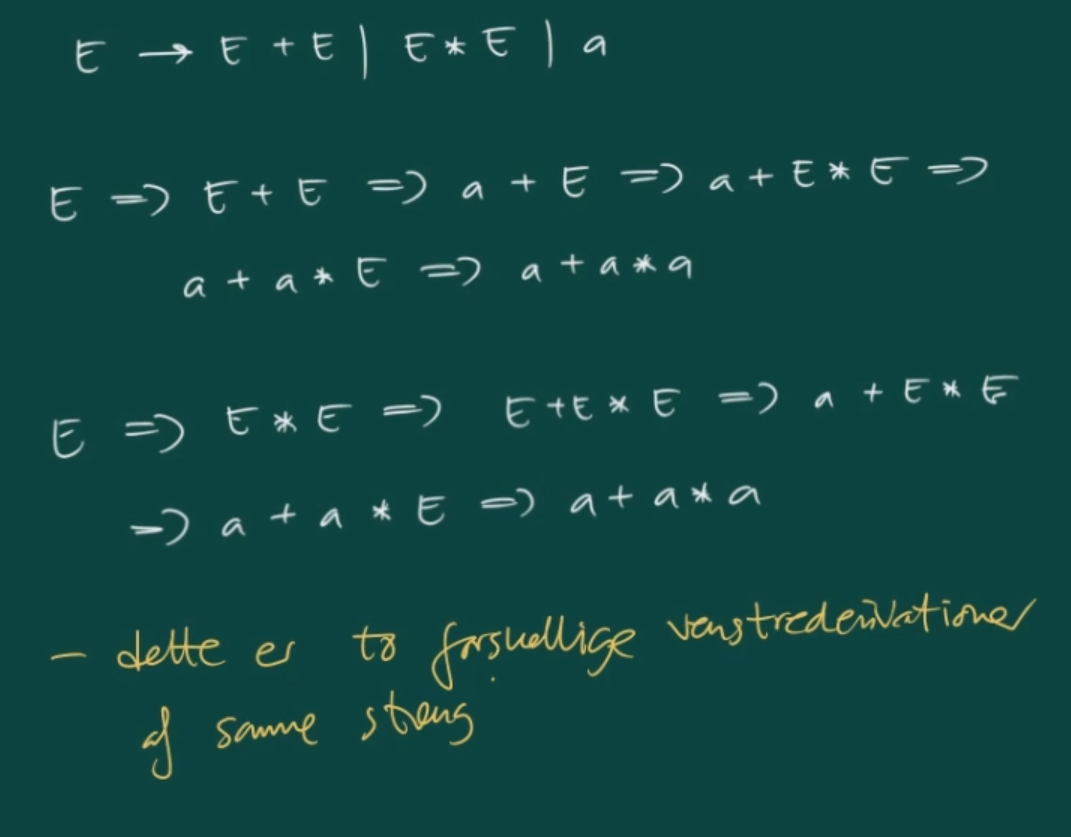 E → E + E | E * E | a
E => E + E => a + E => a + E * E =>
a + a * E => a + a * a
E => E * E => E + E * E => a + E * E
=> a + a * E => a + a * a
- dette er to forskellige venstrederivationer
af samme streng